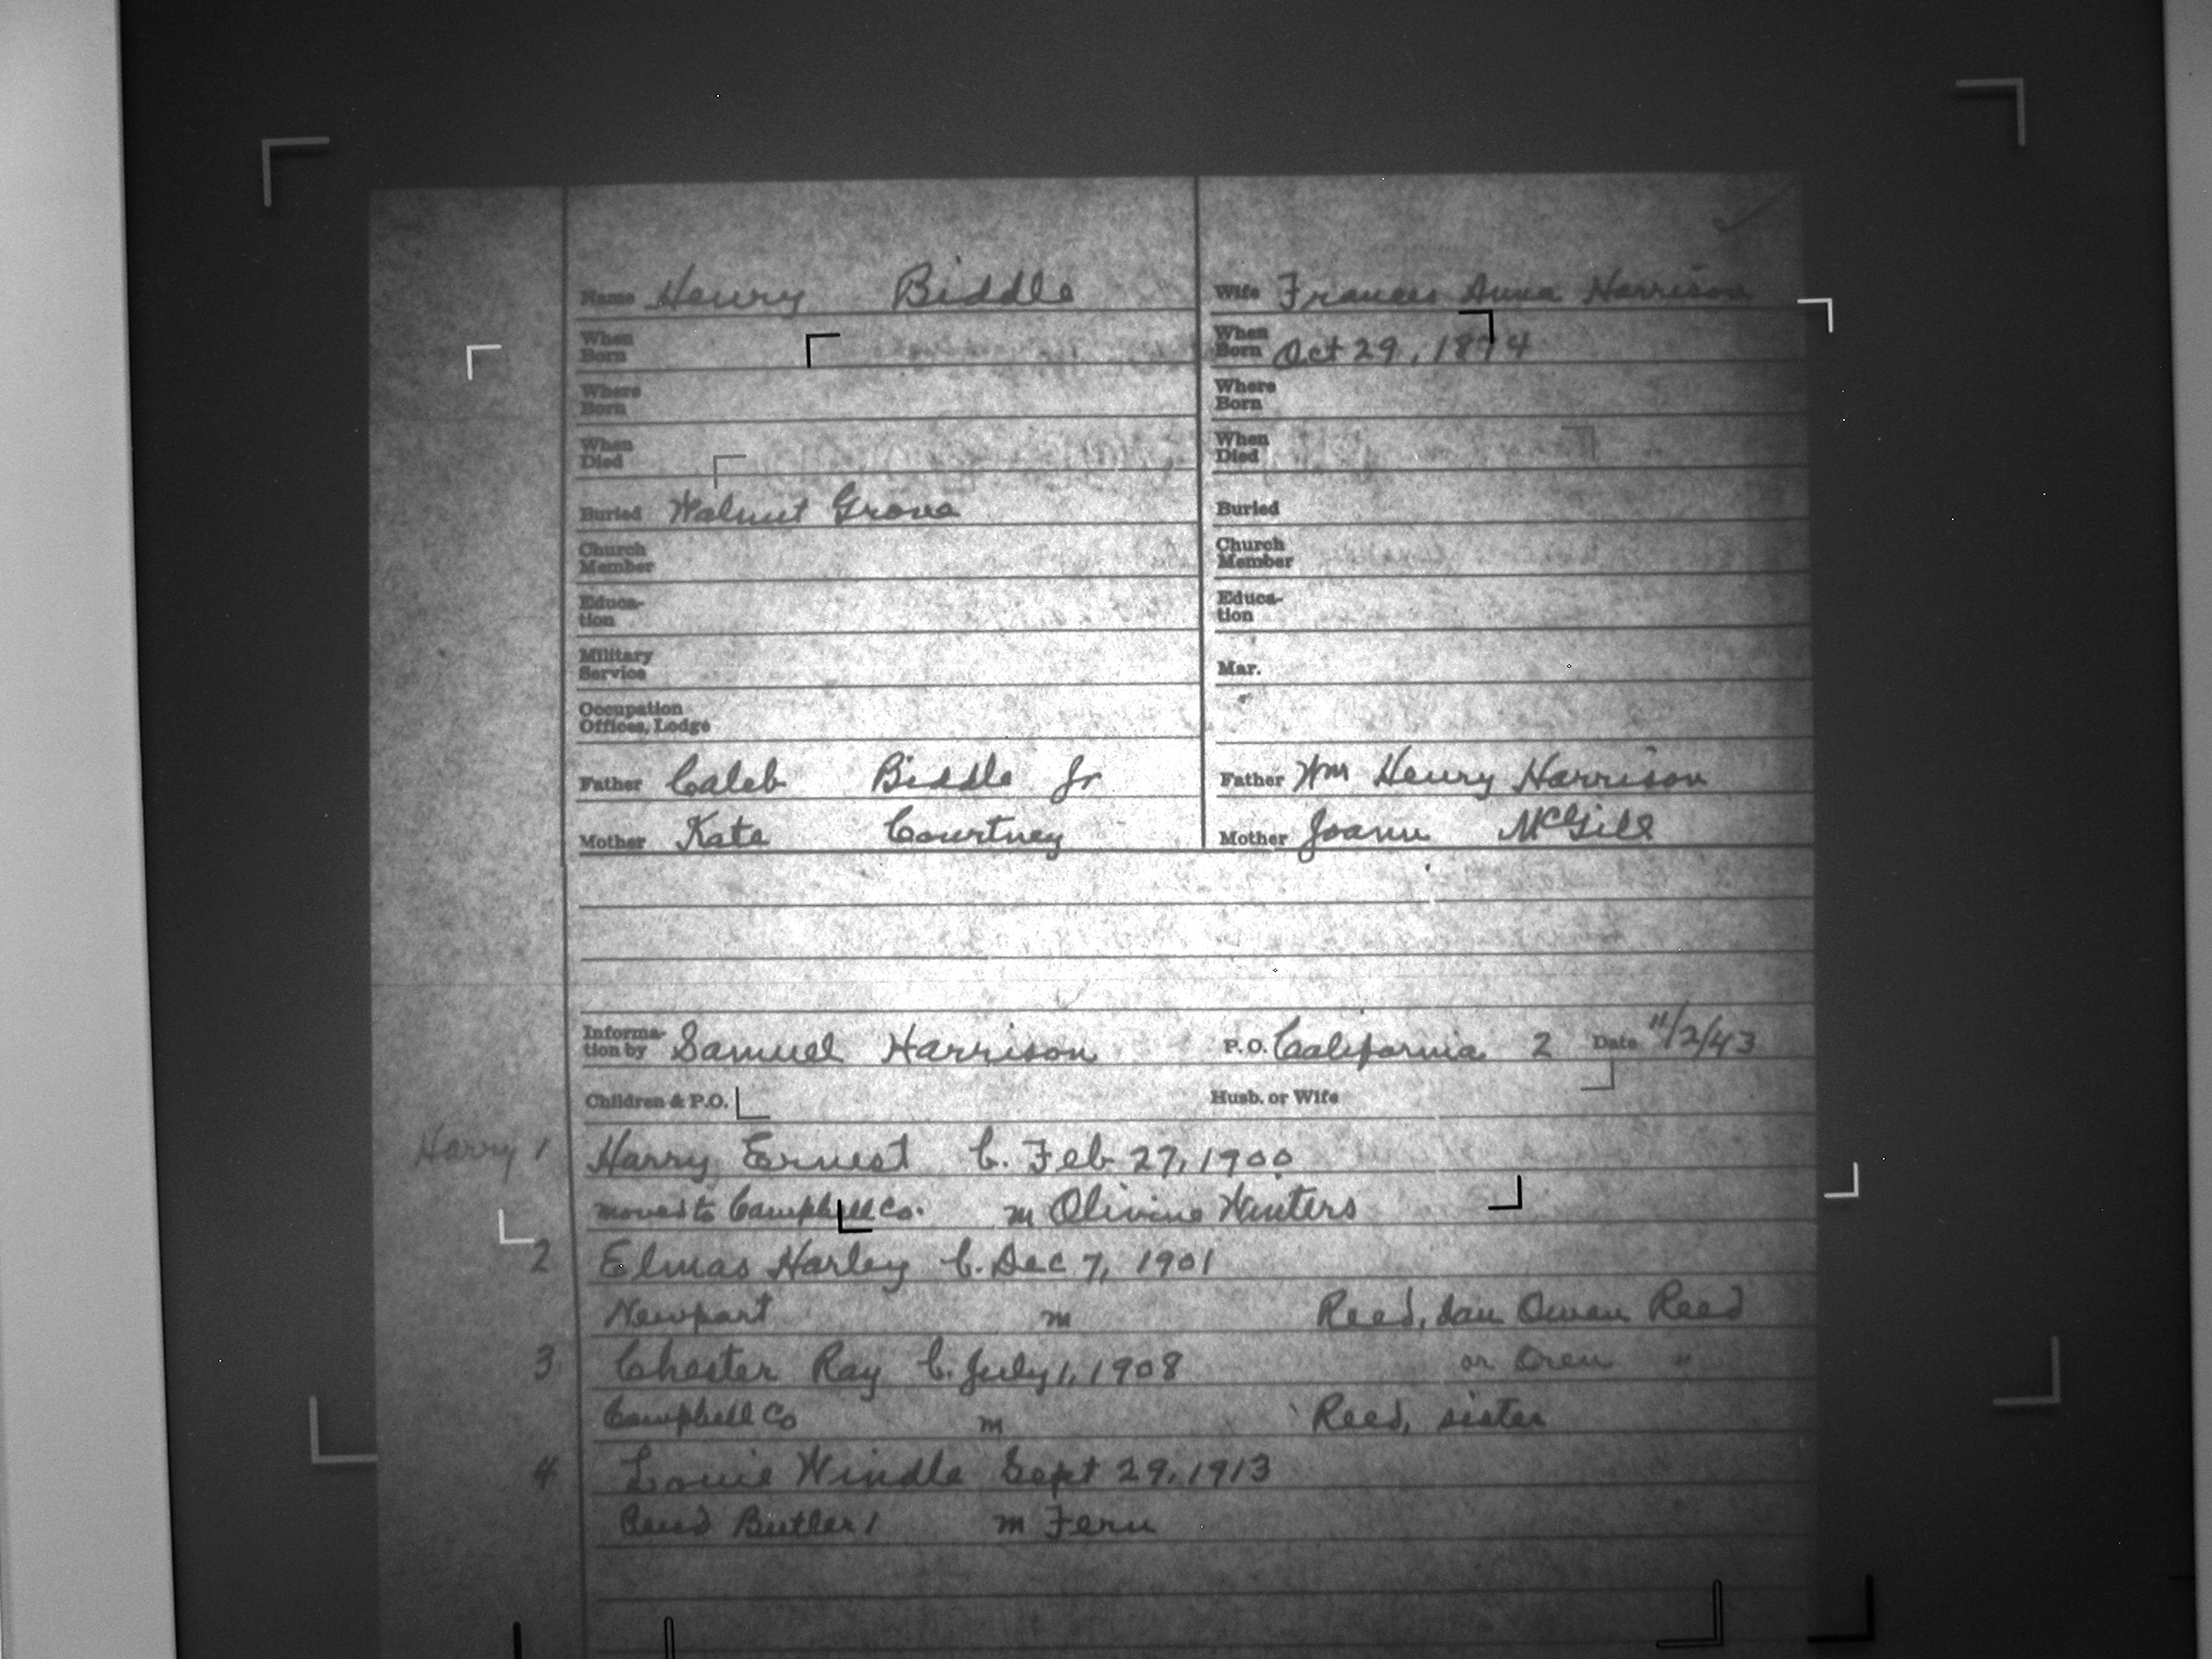 Name Henry Biddle Wife Frances Anna Harrison
When Born When Born Oct 29, 1874
Where Born Where Born
When Died When Died
Buried Walnut Grove Buried
Church Member Church Member
Educa-tion Educa-tion
Military Service Mar.
Occupation Offices, Lodge
Father Caleb Biddle Jr Father Wm Henry Harrison
Mother Kate Courtney Mother Joann McGill
Informa-tion by Samuel Harrison P.O. California 2 Date 11/2/43
Children & P.O. Husb. or Wife
Harry 1 Harry Ernest b. Feb 27, 1900
moved to Campbell Co. m Olivine Winters
2 Elmas Harley b. Dec 7, 1901
Newport m Reed, dau Owen Reed
3 Chester Ray b. July 1, 1908 or Oren "
Campbell Co m Reed, sister
4 Louie Windle Sept 29, 1913
Butler 1 m Fern